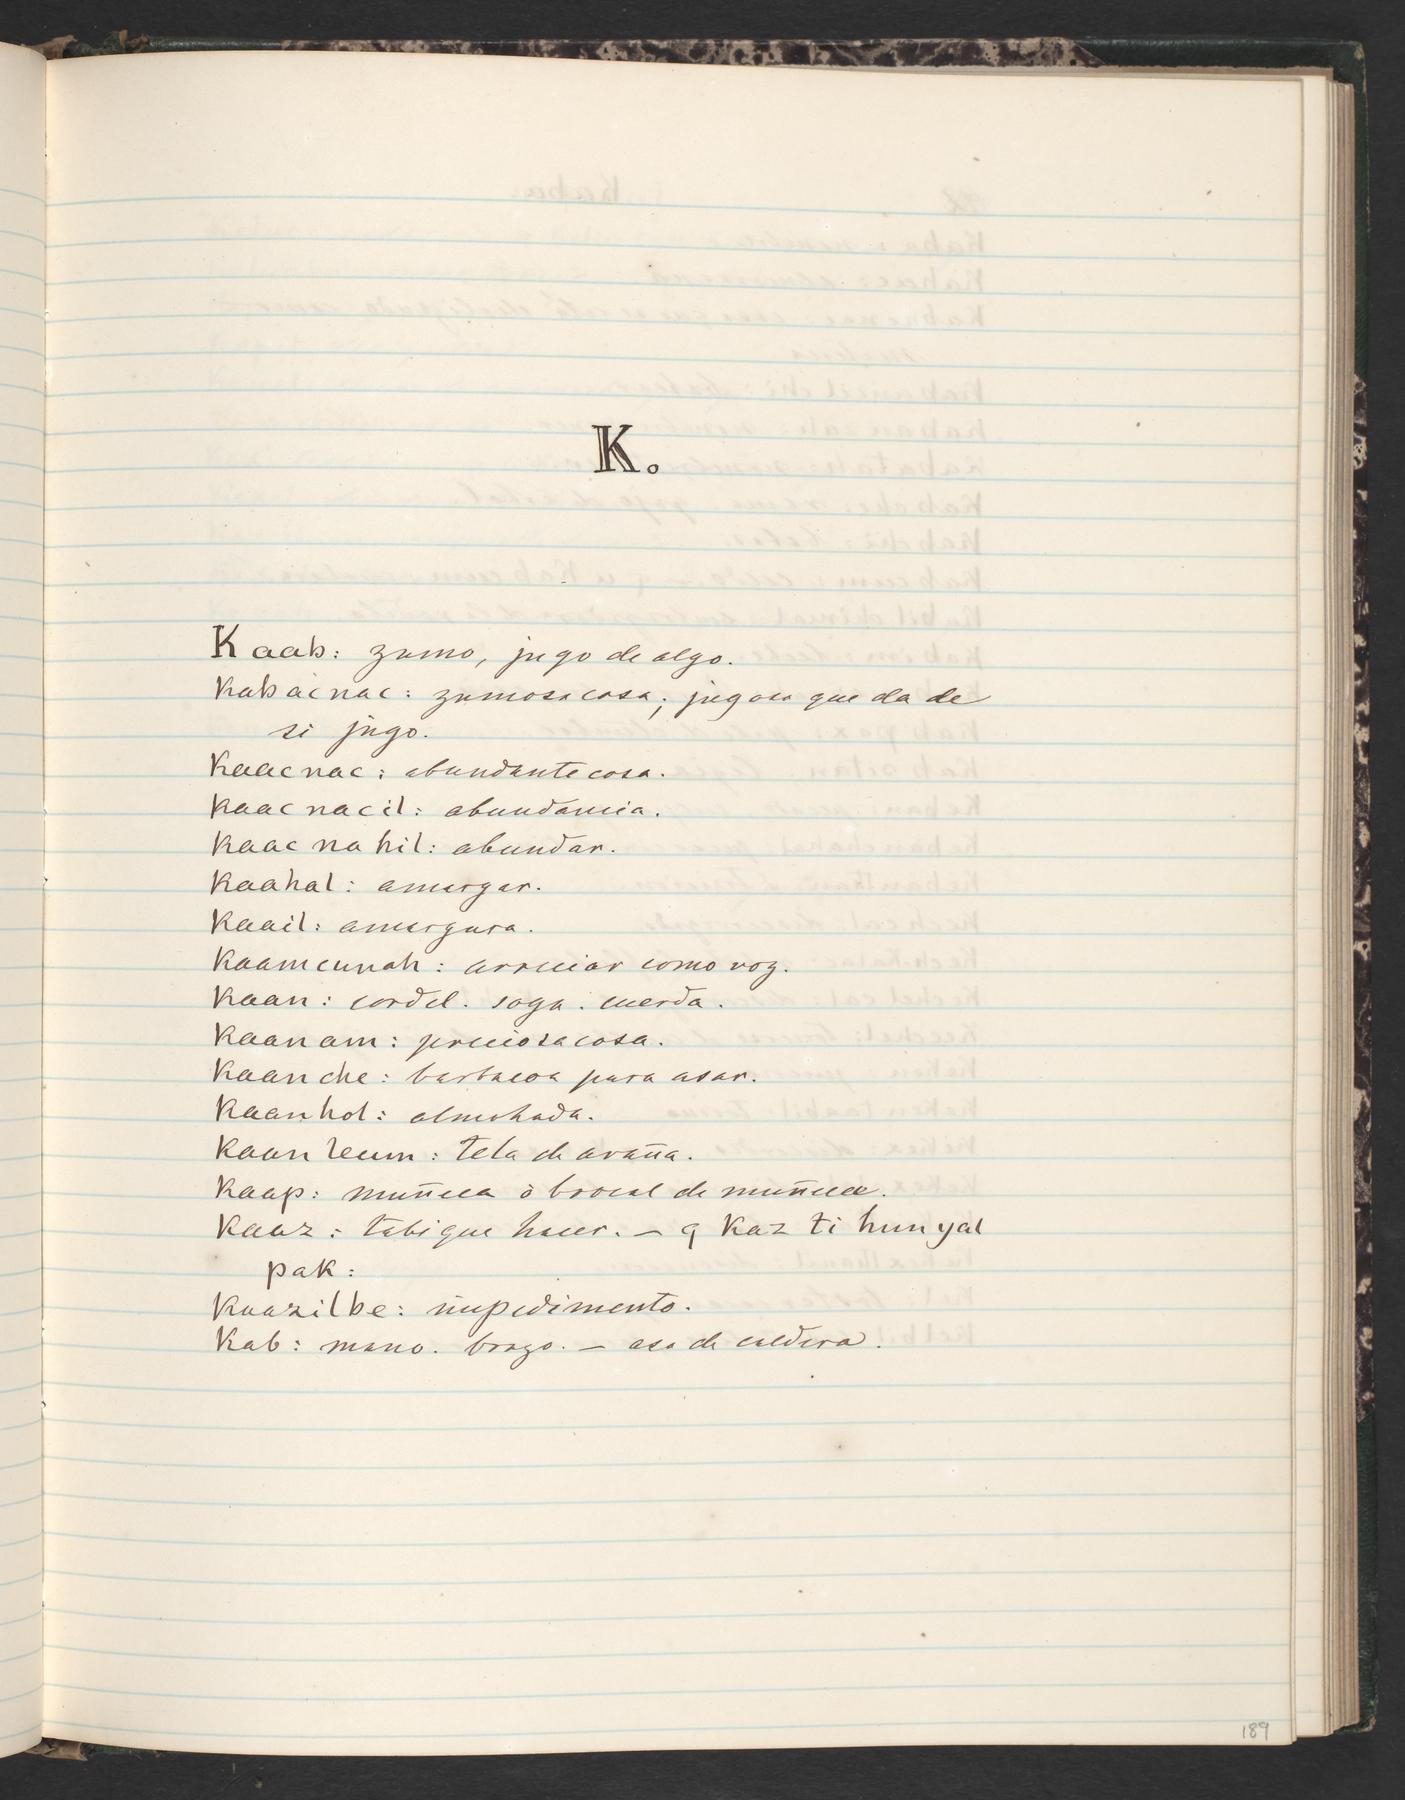 K.
Kaab: zumo, jugo de algo.
Kabacnac: zumosa cosa; jugosa que da de
si jugo.
Kaacnac: abundante cosa.
Kaacnacil: abundancia.
Kaacnahil: abundar.
Kaahal: amargar.
Kaail: amargura.
Kaamcunah: arreciar como voz.
Kaan: cordel. soga. cuerda.
Kaanam: preciosa cosa.
Kaanche: barbacoa para asar.
Kaanhol: almohada.
Kaanleum: tela de araña.
Kaap: muñeca ò brocal de muñeca.
Kaaz: tabique hacer. – q Kaz ti hun yal
pak:
Kaazilbe: impedimento.
Kab: mano. brazo. – asa de caldera.
189